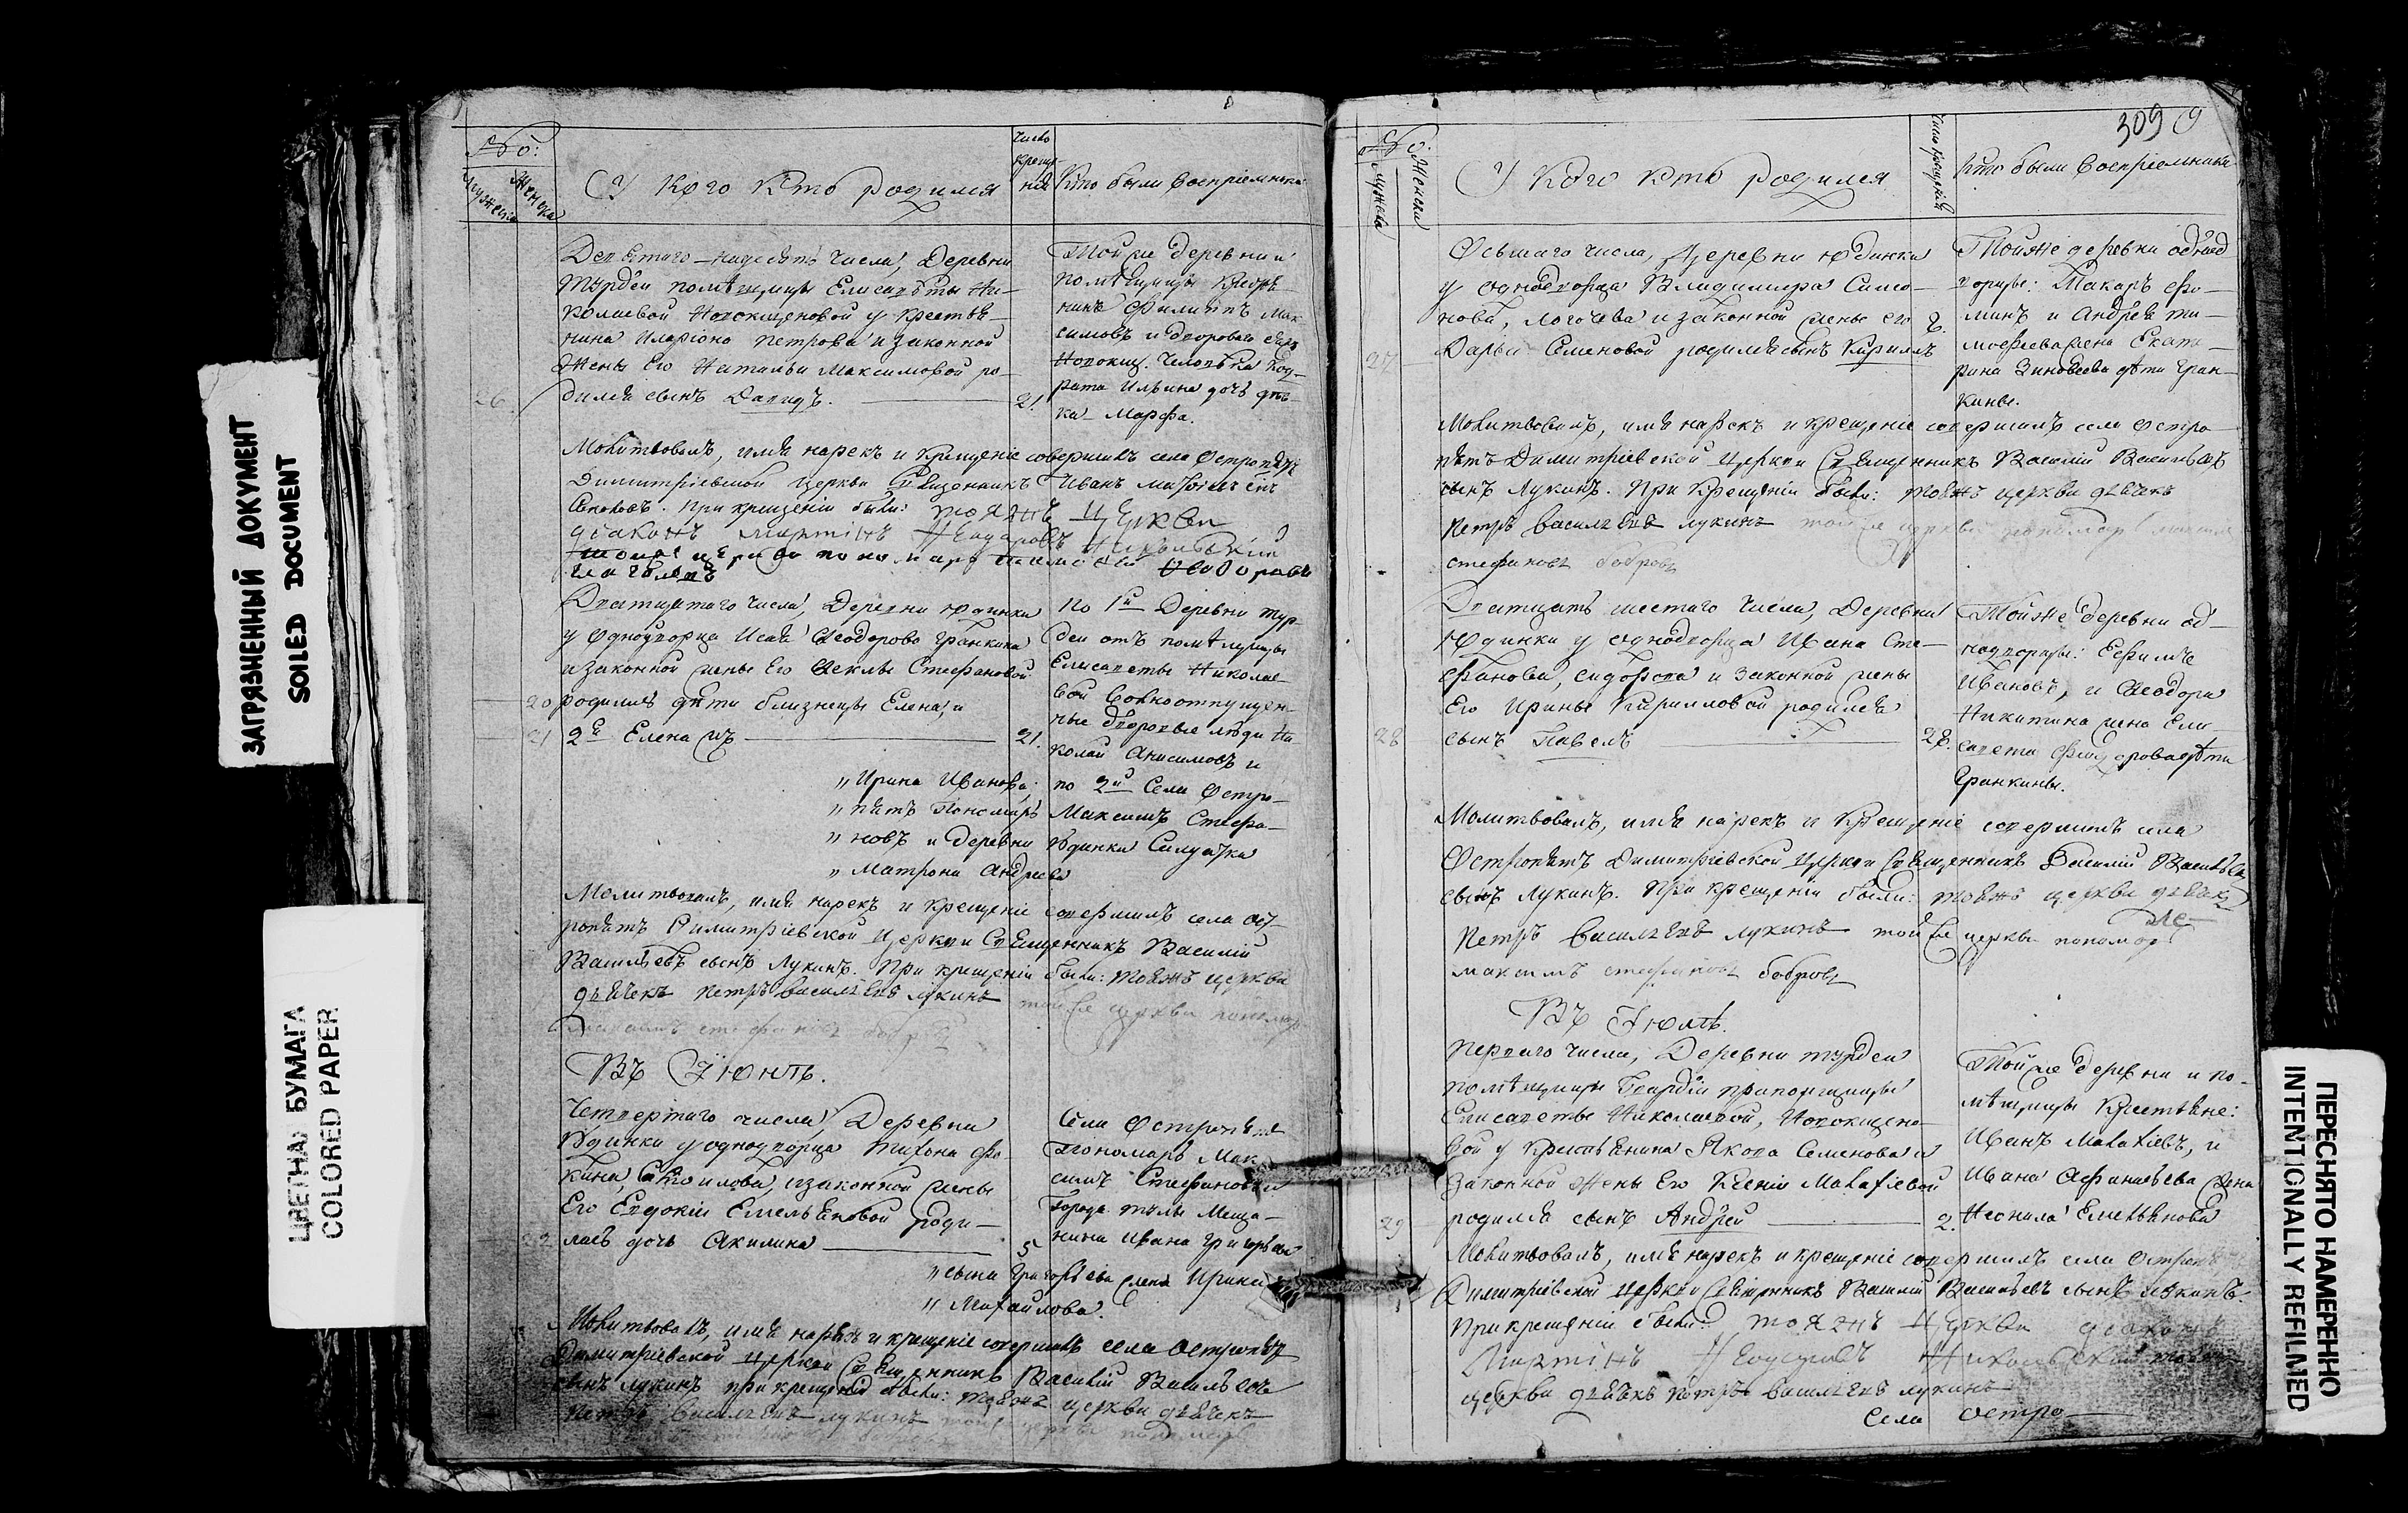 ЗАГРЯЗНЕННЫЙ ДОКУМЕНТ
SOILED DOCUMENT
ЦВЕТНАЯ БУМАГА
COLORED PAPER
№:
Мужеска
Женска
У кого кто родился
Число
креще-
нія
Кто были Воспріемники
Девятаго-надесять числа, Деревни
Турдеи помѣщицы Елисаветы Ни-
колаевой Новокщеновой у крестья-
нина Иларіона Петрова и законной
жены Его Натальи Максимовой ро-
26. дился сынъ Давидъ. 21.
Той же деревни и
помѣщицы крестья-
нинъ Филиппъ Мак-
симовъ и дворовая
Новокщ. человѣка Код-
рата Ильина дочь дѣв-
ка Марфа.
Молитвовалъ, имя нарекъ и крещеніе совершилъ села Остропятъ
Димитріевской церкви Священникъ Иванъ
Поповъ. При крещеніи были: тоя же церкви
діаконъ Мартінъ Никольскій
церкви пономарь
Дватцатаго числа, Деревни Юдинки
у Однодворца Исаія Ѳеодорова Гранкина
и законной жены Его Ѳеклы Стефановой
20 родились дѣти близнецы Елена, и
21 2я Елена жъ 21.
По 1й Деревни Тур-
деи отъ помѣщицы
Елисаветы Николае-
вой Вольноотпущен-
ные дворовые люди Ни-
колай Анисимовъ и
„ Ирина Иванова; по 2й Села Остро-
„ пятъ Пономарь Максимъ Стефа-
„ новъ и деревни Юдинки Солдатка
„ Матрона Андреева
Молитвовалъ, имя нарекъ и крещеніе совершилъ села Ост-
ропятъ Димитріевской церкви Священникъ Василій
Васильевъ сынъ Лукинъ. При крещеніи были: тояжъ церкви
дьячекъ Петръ Васильевъ Лукинъ той же церкви пономарь
Максимъ Стефановъ Бобровъ
Въ Іюнѣ.
Четвертаго числа, Деревни
Юдинки у однодворца Тихона Фо-
кина, Самоилова, и законной жены
Его Евдокіи Емельяновой роди-
22 лась дочь Акилина 5
Села Остропятъ
Пономарь Мак-
симъ Стефановъ и
Города Тулы Меща-
нина Ивана Григорьева
„ сына Григорьева жена Ирина
„ Михайлова.
Молитвовалъ, имя нарекъ и крещеніе совершилъ села Остропятъ
Димитріевской церкви Священникъ Василій Васильевъ
сынъ Лукинъ при крещеніи были: тояжъ церкви дьячекъ
Петръ Васильевъ Лукинъ той же церкви пономарь
309
№:
Мужеска
Женска
У кого кто родился
Число крещенія
Кто были Воспріемники
Осьмаго числа, Деревни Юдинки
у однодворца Владимира Симо-
нова, Логочева и законной жены его 8.
27 Дарьи Семеновой родился сынъ Кириллъ
Тойже деревни однод-
ворцы: Макаръ Фо-
минъ и Андрея Ти-
мофеева жена Екате-
рина Зиновеева дѣти Гран-
кины.
Молитвовалъ, имя нарекъ и крещеніе совершилъ села Остро-
пятъ Димитріевской церкви Священникъ Василій Васильевъ
сынъ Лукинъ. При крещеніи были: тояжъ церкви дьячекъ
Петръ Васильевъ Лукинъ той же церкви пономарь Максимъ
Стефановъ Бобровъ
Дватцать шестаго числа, Деревни
Юдинки у однодворца Ивана Сте-
фанова, Сидорова и законной жены
Его Ирины Кирилловой родился
28 сынъ Павелъ 28.
Тойже деревни од-
нодворцы: Ефимъ
Ивановъ, и Ѳеодора
Никитина жена Ели-
савета Ѳеодорова дѣти
Гранкины.
Молитвовалъ, имя нарекъ и крещеніе совершилъ села
Остропятъ Димитріевской церкви Священникъ Василій Васильевъ
сынъ Лукинъ. При крещеніи были: тояжъ церкви дьячекъ
Петръ Васильевъ Лукинъ той же церкви пономарь
Максимъ Стефановъ Бобровъ
Въ Іюлѣ.
Перваго числа, Деревни Турдеи
помѣщицы Гвардіи прапорщицы
Елисаветы Николаевой, Новокщено-
вой у крестьянина Якова Семенова и
законной жены Его Ксеніи Малафіевой
29 родился сынъ Андрей 2.
Той же деревни и по-
мѣщицы Крестьяне:
Иванъ Малахіевъ, и
Ивана Афанасьева жена
Неонила Емельянова
Молитвовалъ, имя нарекъ и крещеніе совершилъ села Остропятъ
Димитріевской церкви Священникъ Василій Васильевъ сынъ Лукинъ.
При крещеніи были: тоя же церкви діаконъ
Мартінъ Никольскій тояжъ
церкви дьячекъ Петръ Васильевъ Лукинъ
Села Остро-
ПЕРЕСНЯТО НАМЕРЕННО
INTENTIONALLY REFILMED